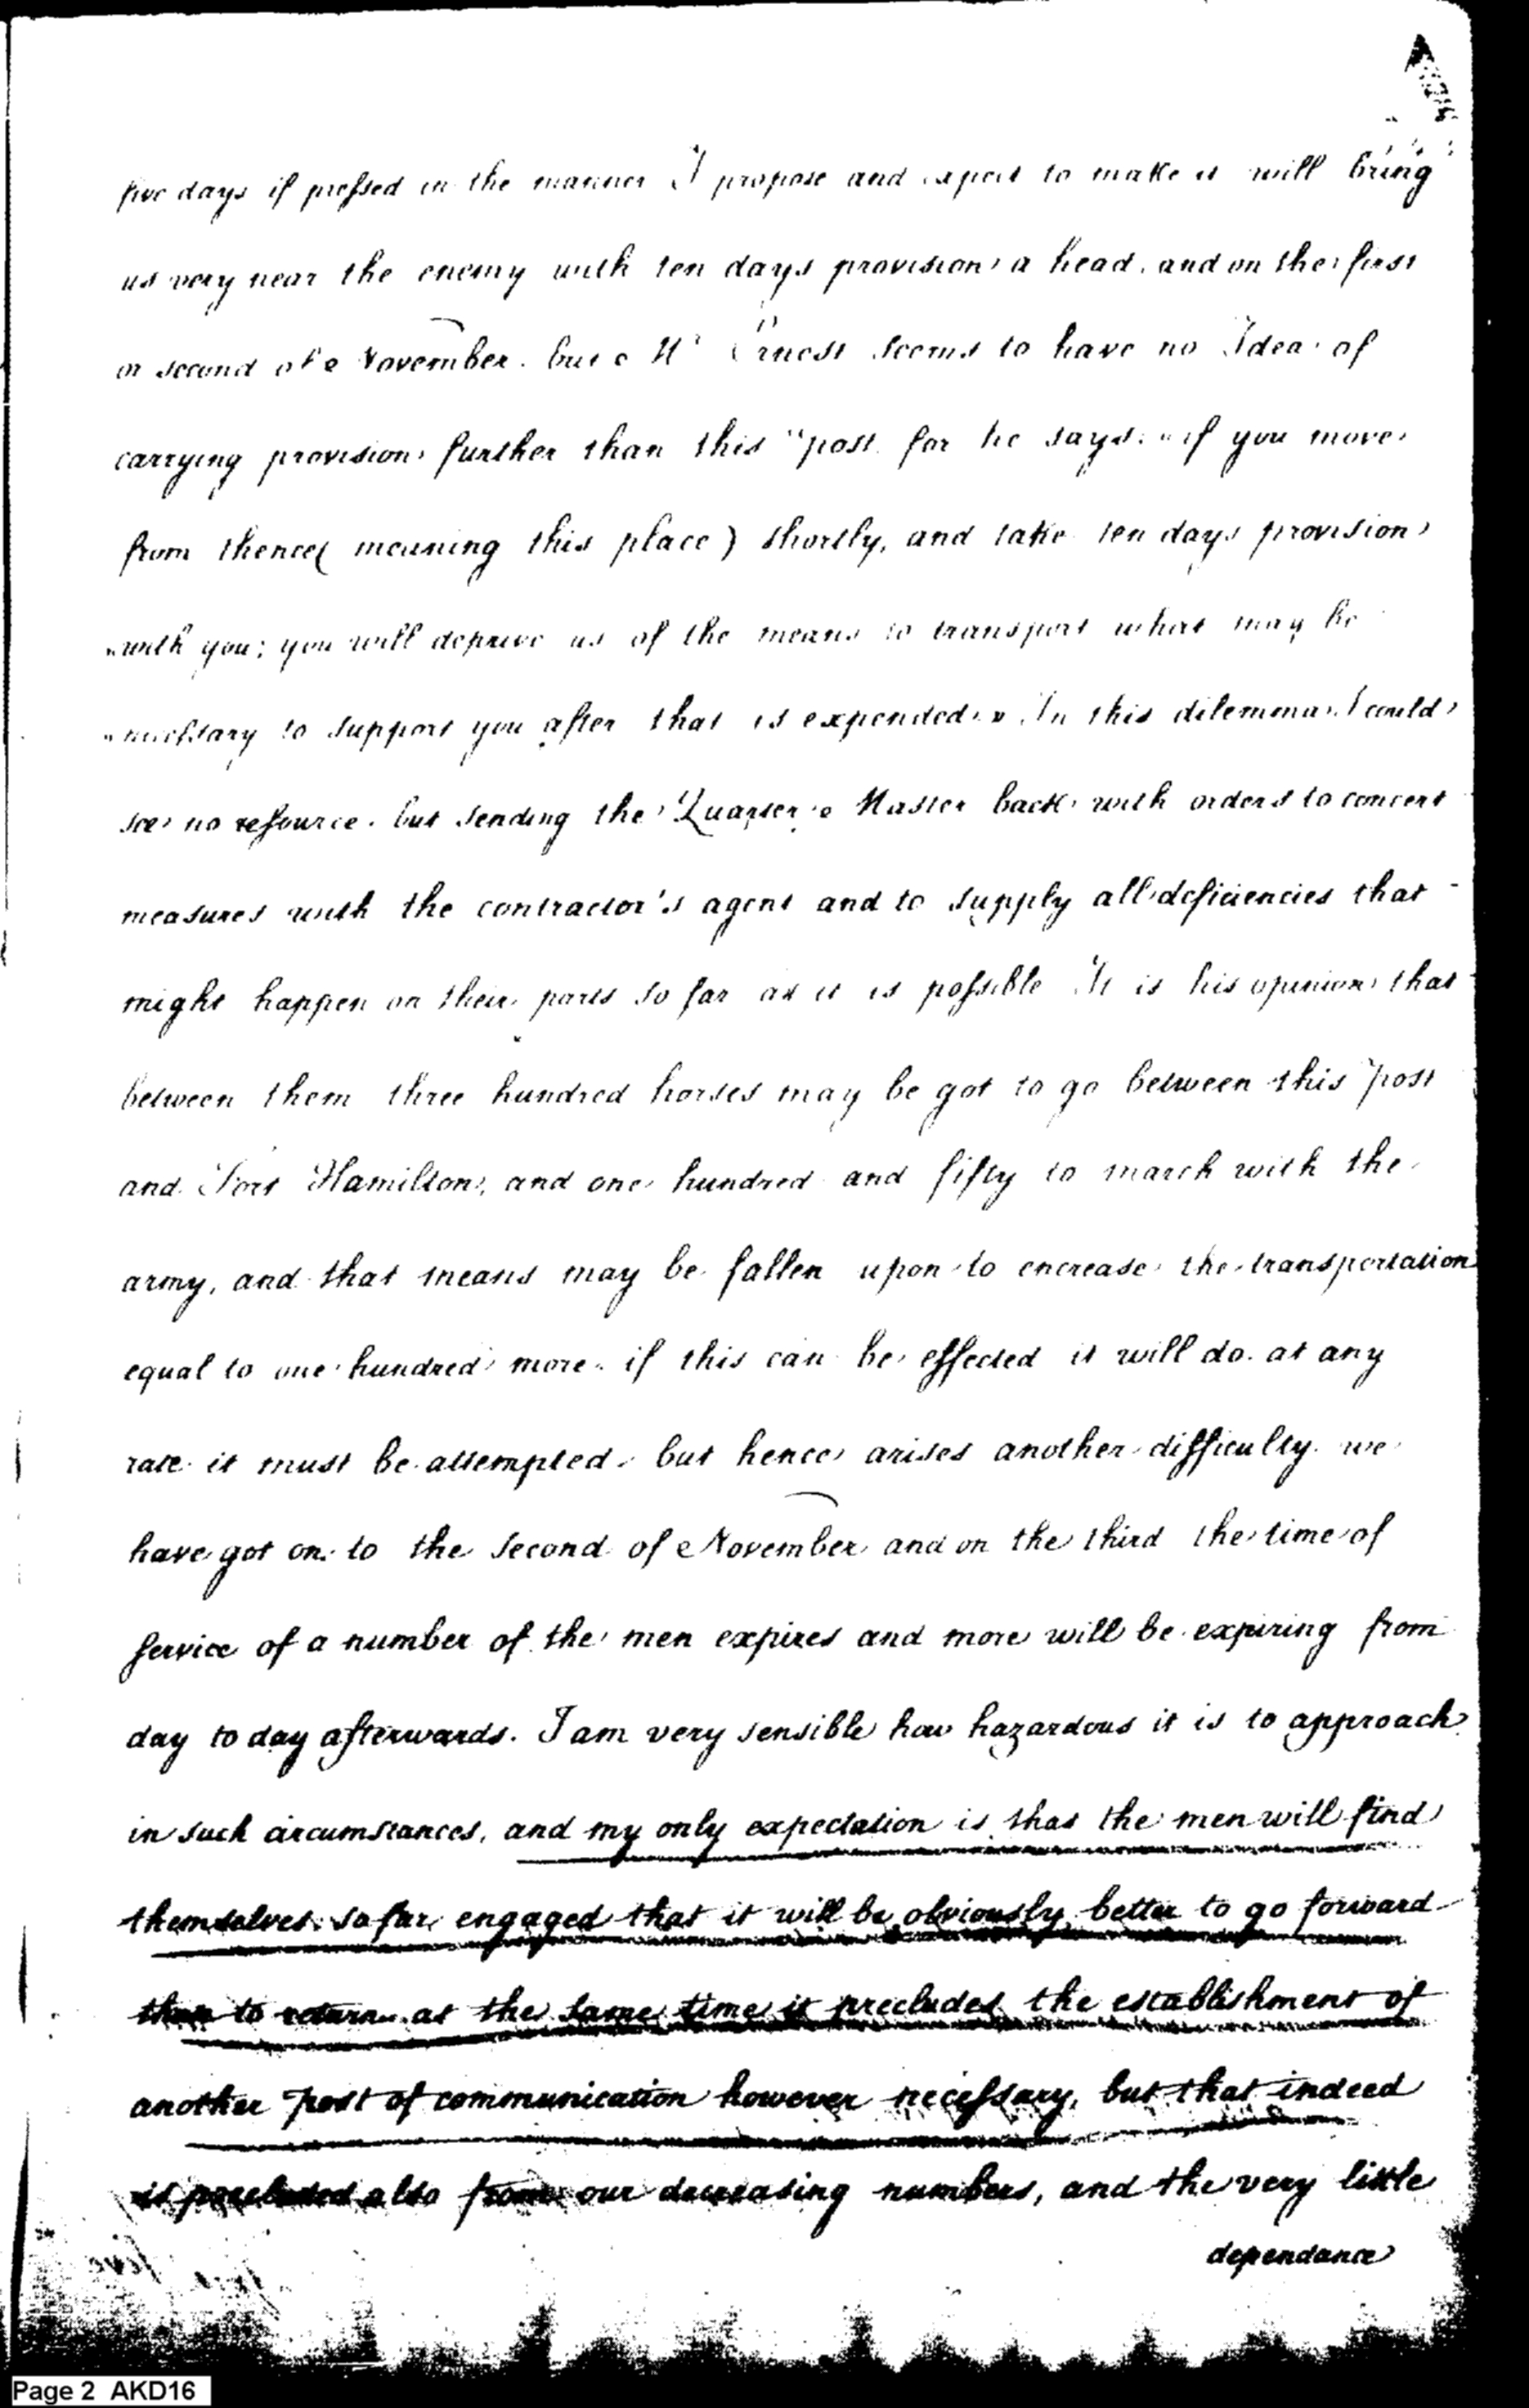 five days if pressed in the manner I propose and expect to make it will bring
us very near the enemy with ten days provision a head. and on the first
or second of November. but Mr Ernest seems to have no Idea of
carrying provision further than this post for he says. "if you move
from thence (meaning this place) shortly, and take ten days provision
"with you; you will deprive us of the means to transport what may be
"necessary to support you after that is expended." In this dilemma I could
see no resource. but sending the Quarter Master back with orders to concert
measures with the contractor's agent and to supply all deficiencies that
might happen on their parts so far as it is possible It is his opinion that
between them three hundred horses may be got to go between this post
and Fort Hamilton, and one hundred and fifty to march with the
army, and that means may be fallen upon to encrease the transportation
equal to one hundred more. if this can be effected it will do. at any
rate it must be attempted. but hence arises another difficulty. we
have got on to the second of November and on the third the time of
service of a number of the men expires and more will be expiring from
day to day afterwards. I am very sensible how hazardous it is to approach
in such circumstances, and my only expectation is that the men will find
themselves so far engaged that it will be obviously better to go forward
than to return. at the same time it precludes the establishment of
another post of communication however necessary, but that indeed
is precluded also from our decreasing numbers, and the very little
dependance
Page 2 AKD16